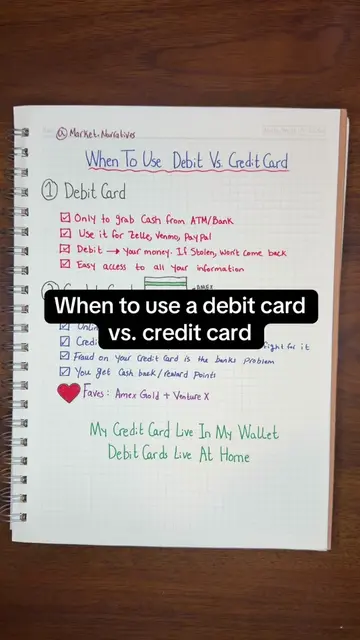 @ Market.Narratives
When To Use Debit Vs. Credit Card
1 Debit Card
Only to grab Cash from ATM/Bank
Use it for Zelle, Venmo, PayPal
Debit → Your money. If Stolen, Won't come back
Easy access to all your information
2
AMEX
When to use a debit card
vs. credit card
fight for it
Fraud on your Credit Card is the banks problem
You get Cash back/reward Points
Faves: Amex Gold + Venture X
My Credit Card Live In My Wallet
Debit Cards Live At Home